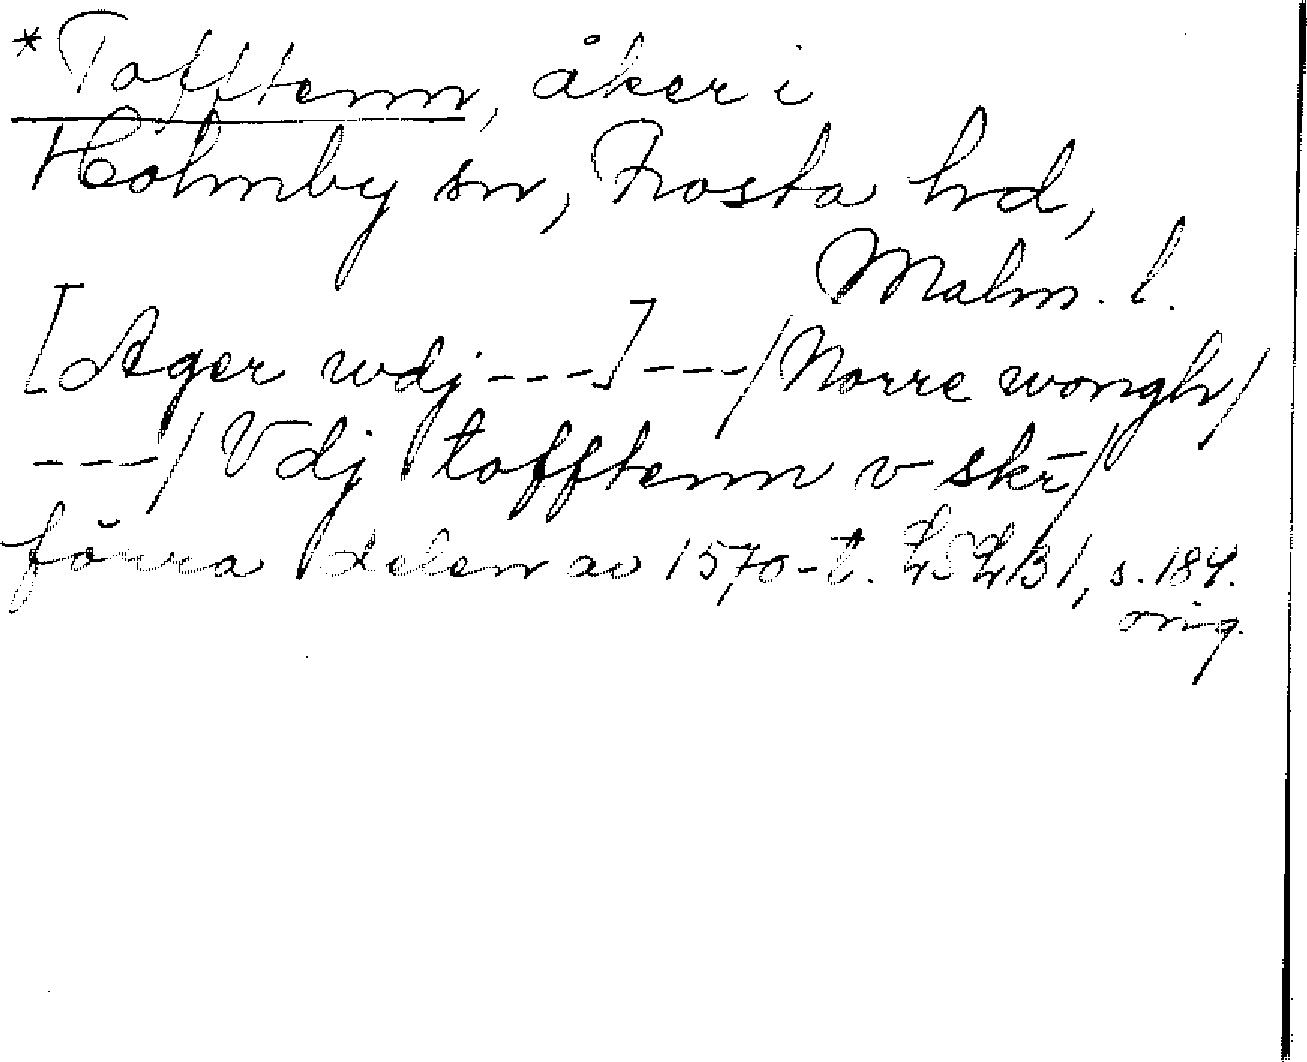 *Tofftenn, åker i
Holmby sn, Frosta hd,
Malm. l.
[Ager wdj ---] ---/Norre wongh/
---/Vdj tofftenn v skr/
förra delen av 1570-t. LSLB1, s. 184.
orig.